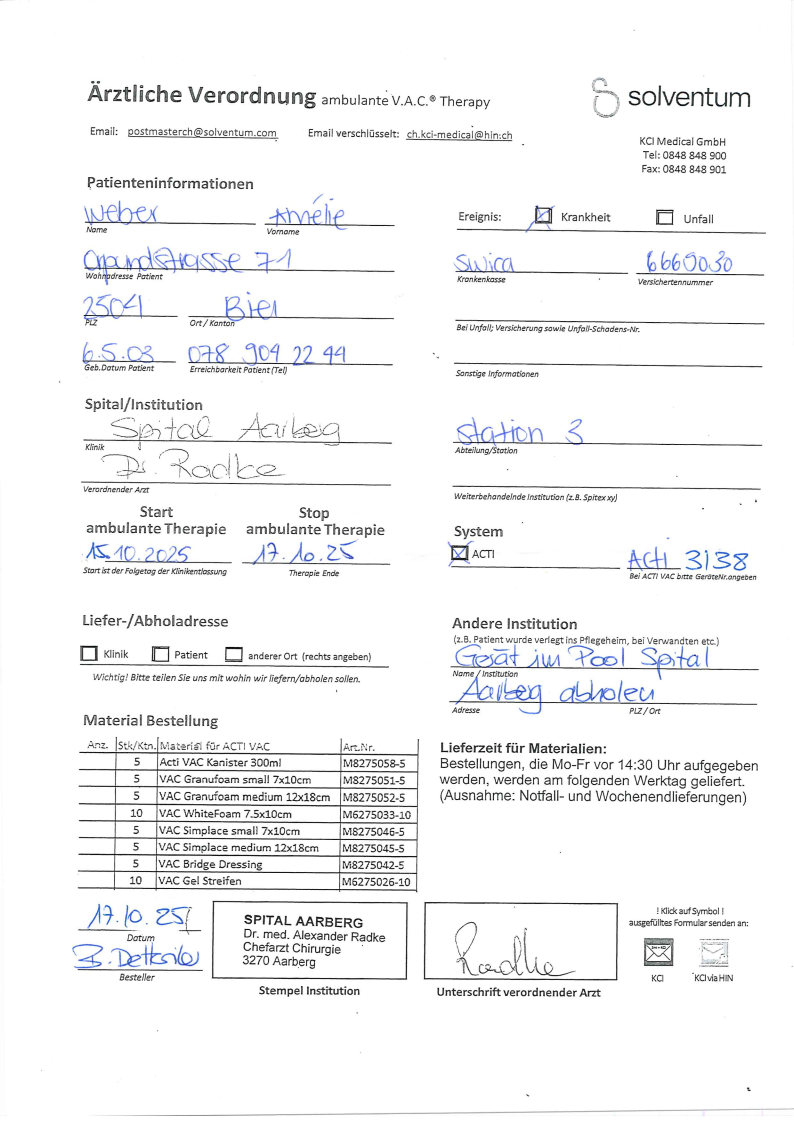 Ärztliche Verordnung ambulante V.A.C.® Therapy
solventum
Email: postmasterch@solventum.com Email verschlüsselt: ch.kci-medical@hin.ch
KCI Medical GmbH
Tel: 0848 848 900
Fax: 0848 848 901
Patienteninformationen
Weber Amélie
Name Vorname
Ereignis: Krankheit Unfall
Grundstrasse 71
Wohnadresse Patient
Swica 6660030
Krankenkasse Versichertennummer
2504 Biel
PLZ Ort / Kanton
Bei Unfall; Versicherung sowie Unfall-Schadens-Nr.
6.5.03 078 904 22 44
Geb.Datum Patient Erreichbarkeit Patient (Tel)
Sonstige Informationen
Spital/Institution
Spital Aarberg
Klinik
Station 3
Abteilung/Station
Dr. Radke
Verordnender Arzt
Weiterbehandelnde Institution (z.B. Spitex xy)
Start ambulante Therapie
Stop ambulante Therapie
15.10.2025 17.10.25
Start ist der Folgetag der Klinikentlassung Therapie Ende
System
ACTI ACTI 3138
Bei ACTI VAC bitte GeräteNr.angeben
Liefer-/Abholadresse
Klinik Patient anderer Ort (rechts angeben)
Wichtig! Bitte teilen Sie uns mit wohin wir liefern/abholen sollen.
Andere Institution
(z.B. Patient wurde verlegt ins Pflegeheim, bei Verwandten etc.)
Gerät im Pool Spital
Name / Institution
Aarberg abholen
Adresse PLZ / Ort
Material Bestellung
Anz. Stk/Ktn. Material für ACTI VAC Art.Nr.
5 Acti VAC Kanister 300ml M8275058-5
5 VAC Granufoam small 7x10cm M8275051-5
5 VAC Granufoam medium 12x18cm M8275052-5
10 VAC WhiteFoam 7.5x10cm M6275033-10
5 VAC Simplace small 7x10cm M8275046-5
5 VAC Simplace medium 12x18cm M8275045-5
5 VAC Bridge Dressing M8275042-5
10 VAC Gel Streifen M6275026-10
Lieferzeit für Materialien:
Bestellungen, die Mo-Fr vor 14:30 Uhr aufgegeben
werden, werden am folgenden Werktag geliefert.
(Ausnahme: Notfall- und Wochenendlieferungen)
17.10.25
Datum
B.
Besteller
SPITAL AARBERG
Dr. med. Alexander Radke
Chefarzt Chirurgie
3270 Aarberg
Stempel Institution
Radke
Unterschrift verordnender Arzt
! Klick auf Symbol !
ausgefülltes Formular senden an:
KCI KCI via HIN